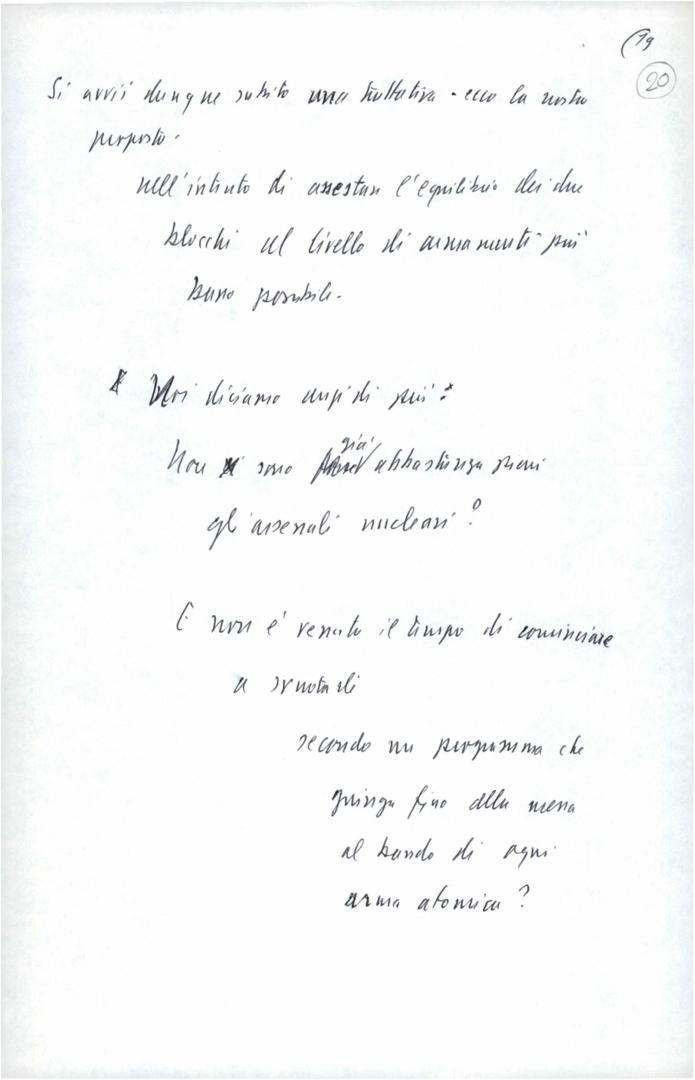 19
20
Si avvii dunque subito una trattativa - ecco la nostra
proposta -
nell'intento di assestare l'equilibrio dei due
blocchi al livello di armamenti più
basso possibile.
Noi diciamo anzi di più:
Non sono già abbastanza pieni
gli arsenali nucleari?
E non è venuto il tempo di cominciare
a svuotarli
secondo un programma che
giunga fino alla messa
al bando di ogni
arma atomica?